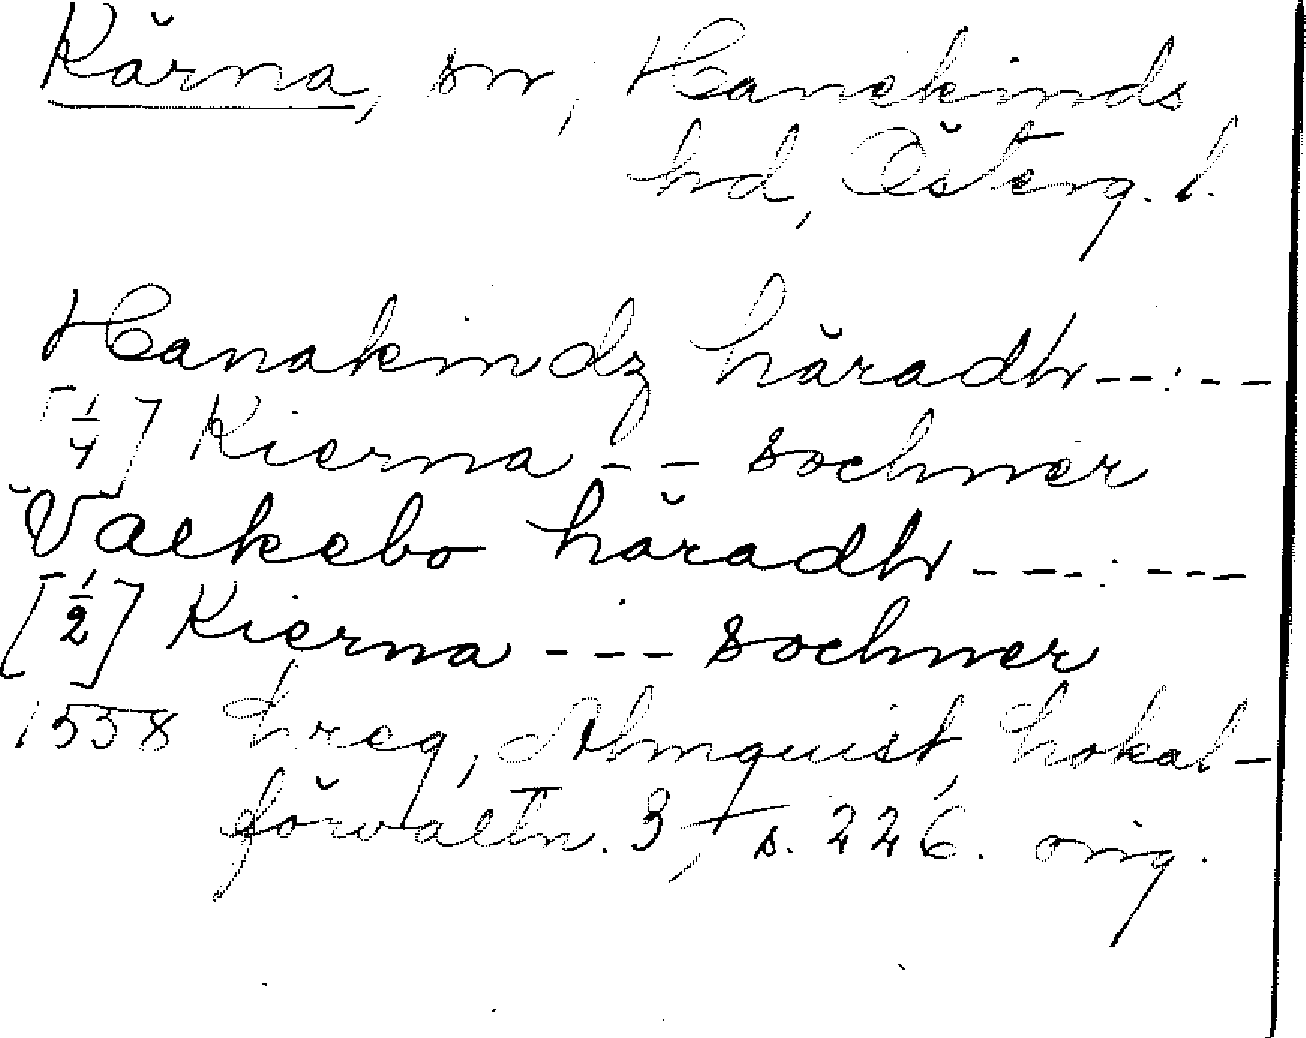 Kärna, sn, Hanekinds
hd, Österg. l.
Hanakindz häradh --:--
[1/4] Kierna -- sochner
Valkebo häradh ---:---
[1/2] Kierna --- sochner
1558 hreg, Almquist, Lokal-
förvaltn. 3, s. 226. orig.